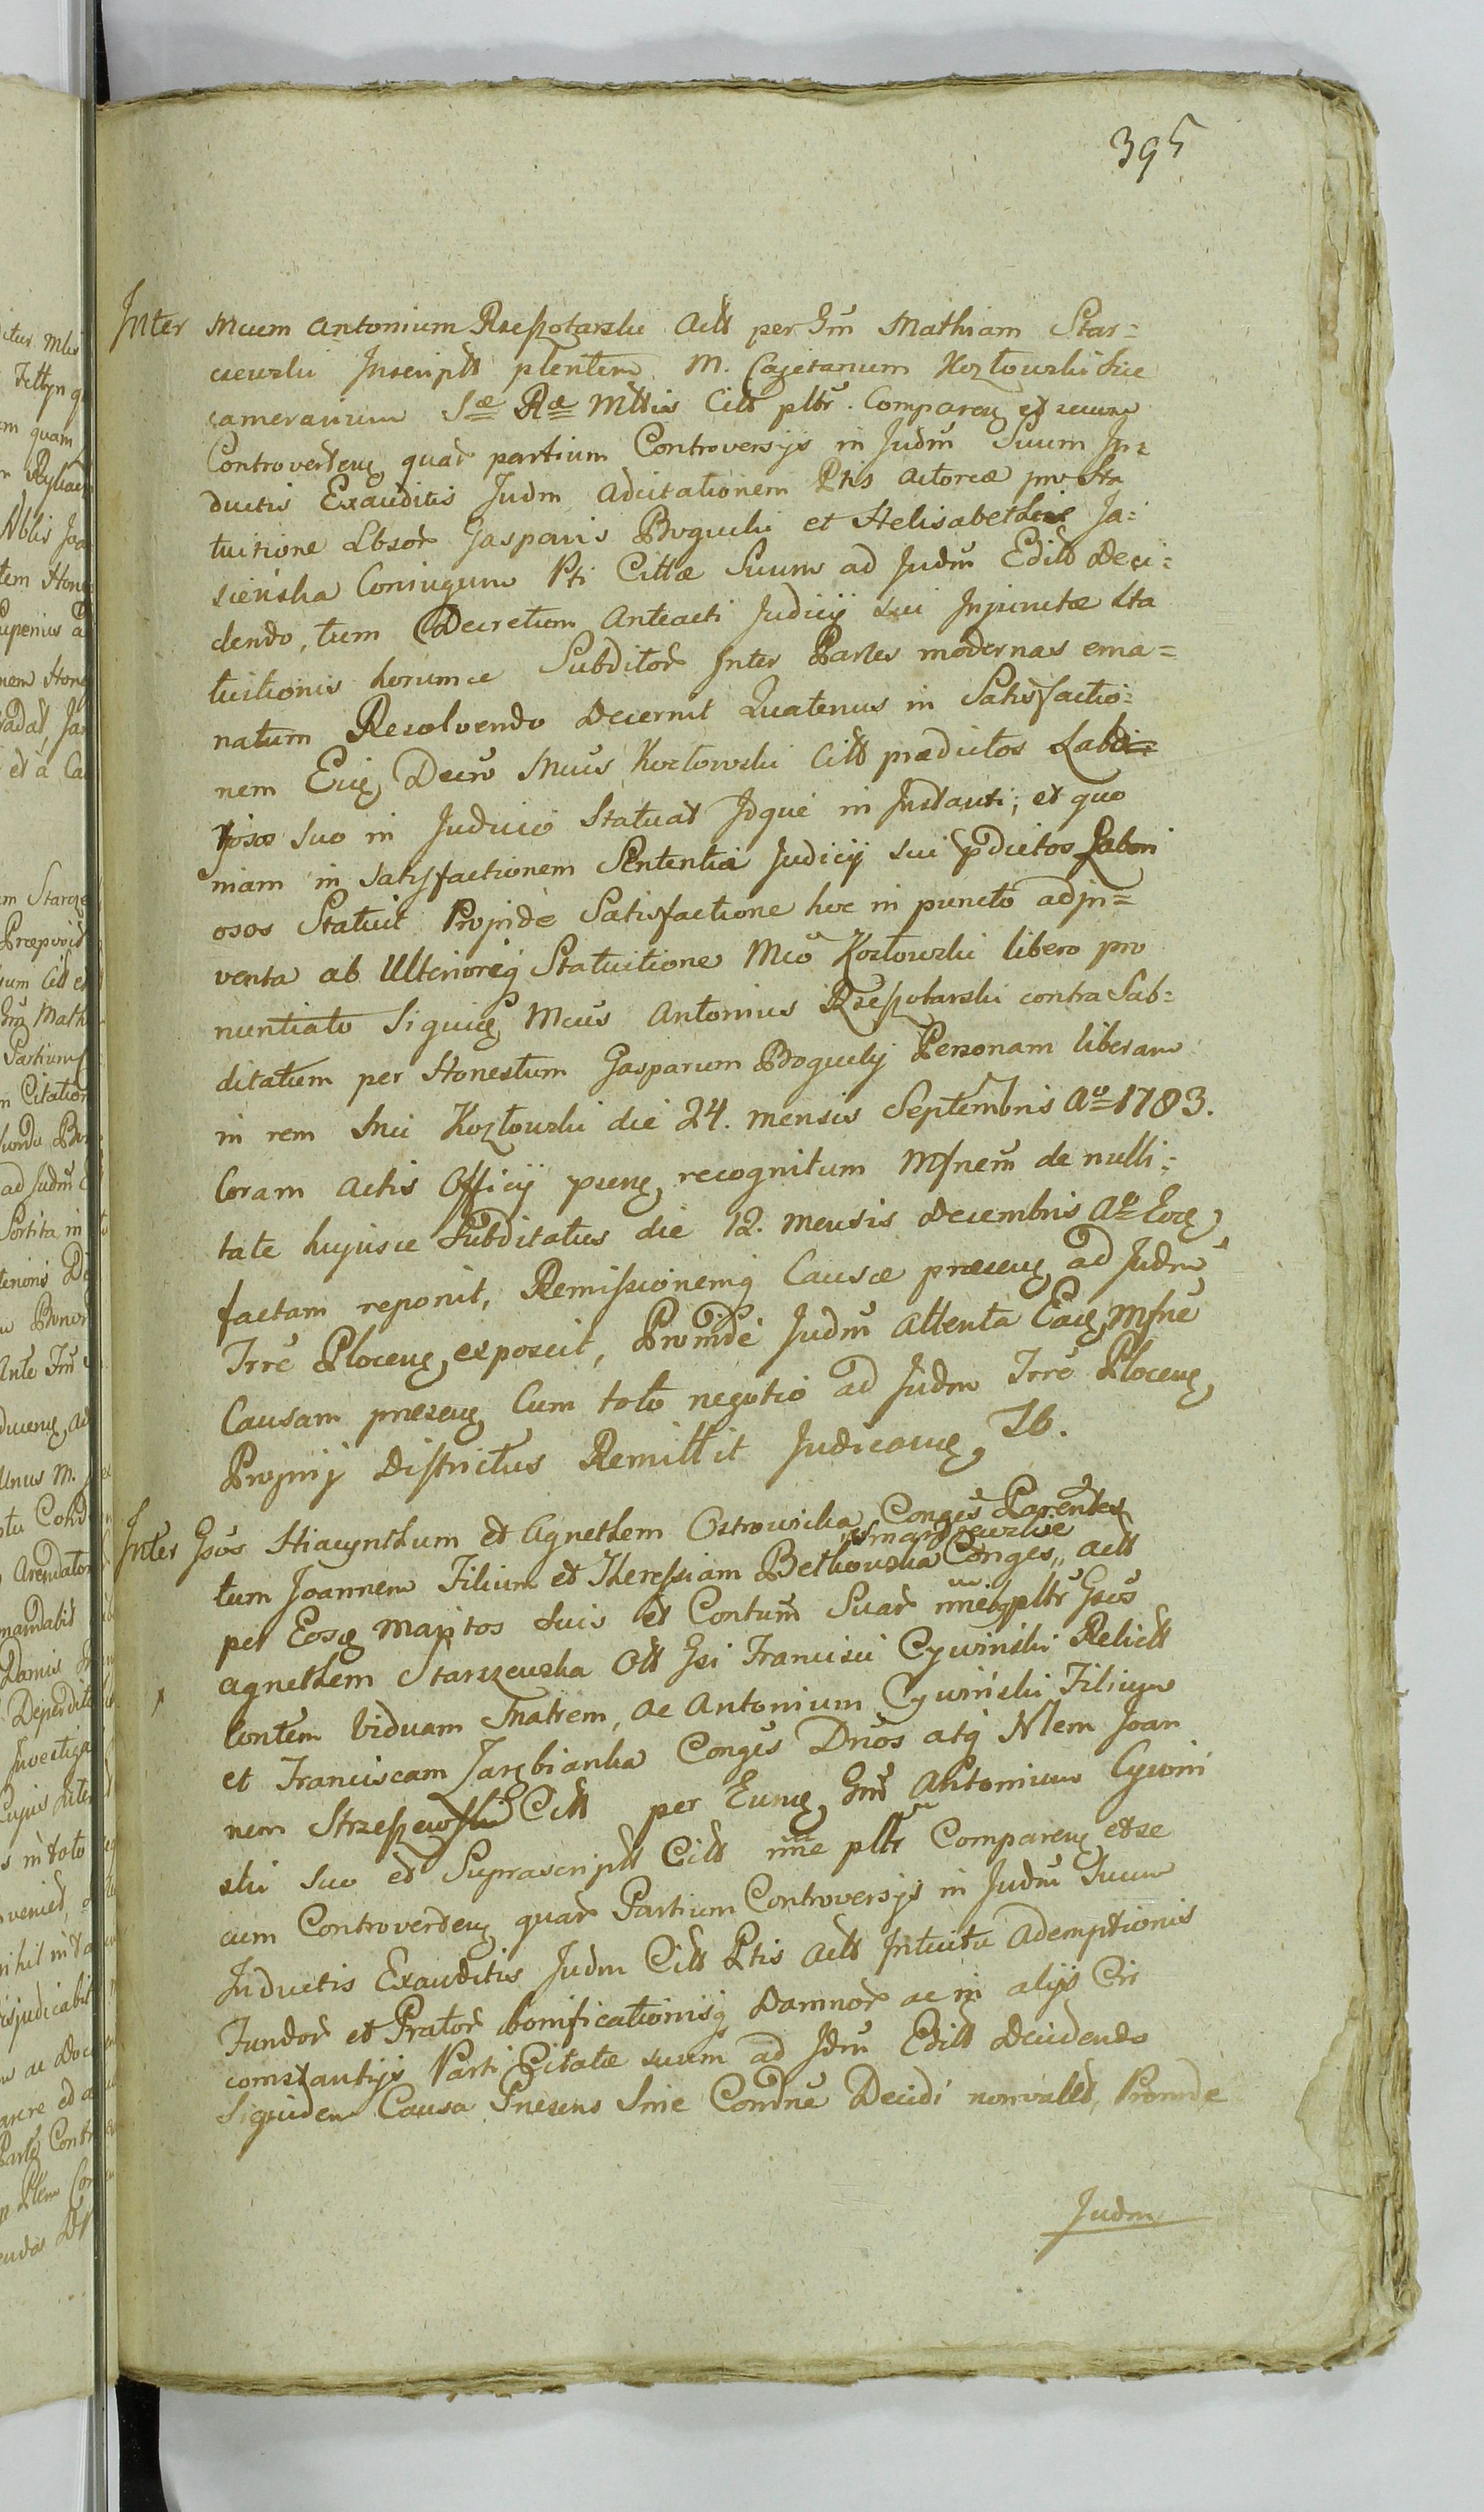 395
Inter Mcum Antonium Rzeszotarski Actt per Gm Mathiam Star=
czewski Inscriptt plentem M. Cajetanum Kozłowski Suc
camerarium Sæ Ræ Mttis Citt pltr. Comparen et secum
Controverten quar partium Controversijs in Judm Suum In=
ductis Exauditis Judm Adcitationem Ptis actoreæ pro Sta
tuitione Lbsor Gasparis Boguchi et Helisabethæ Ja=
sieńska Coniugum Pti Cittæ Suum ad Judm Editt Deci=
dendo, tum Decretum Anteacti Judicij sui Injunctæ Sta
tuitionis horumce Subditor Inter Partes modernas ema=
natum Resolvendo Decernit Quatenus in Satisfactio=
nem Eius Decri Mcus Kozłowski Citt prædictos Labo=
riosos suo in Judicio Statuat Idque in Instanti; et quo
niam in satisfactionem Sententiæ Judicij sui pdictos Labori
osos Statuit Proinde Satisfactione hoc in puncto adjn=
venta ab Ulteriorig Statuitione Mco Kozłowski libero pro
nuntiato Siquidem Mcus Antonius Rzeszotarski contra Sab=
ditatum per Honestum Gasparum Boguchj Personam liberam
in rem Mci Kozłowski die 24. mensis Septembris Ao 1783.
Coram actis Officij psens recognitum Mfnem de nulli=
tate hujusce Subditatus die 12. mensis Decembris Ao Eoq
factam reponit, Remissionemq Causæ præsens ad Judm
Trre Plocens exposcit, Proinde Judm attenta Eaq Mfne
Causam præsens Cum toto negotio ad Judm Trre Plocens
Proprij Districtus Remittit Judicans Ib.
Inter Gsos Hiacynthum et Agnethem Ostrowicka Conges Parentes
tum Joannem Filium et Theressiam Bethowska Smardzewskie Conges, actt
per Eosq Maritos Suis et Contum Suar nneibpltr Gsos
Agnethem Starszewska Ott Gsi Francisci Cywiński Relictt
Contem Viduam Matrem, ac Antonium Cywiński Filium
et Franciscam Zarębianka Conges Dnos atq Nlem Joan
nem Strzeszewski Citt per Eunq Gm Antonium Cywiń
ski suo et Suprascriptt Citt nne pltr Comparen et se
cum Controverten quar Partium Controversijs in Judm Suum
Inductis Exauditis Judm Citt Ptis Actt Intuitu Ademptionis
Fundor et Prator bonificationisq Damnor ac in alijs Cir
cumstantijs Parti Citatæ suum ad Jdm Editt Decidendo
Siquidem Causa Præsens Sine Condne Decidi non valet, Proinde
Judm